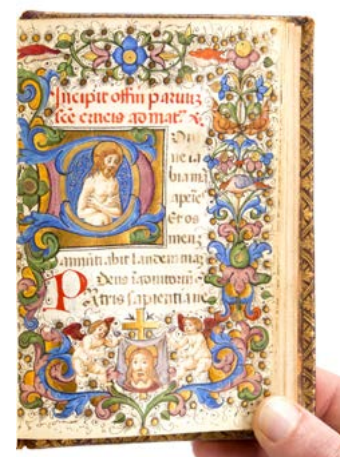 Incipit offm paruuz
sce crucis ad mat
Dn
ne la
bia mā
aperiē
Et os
meuz
annūtiabit laudem tuaz
Deus i adiutoriuz
Patris sapientia ue